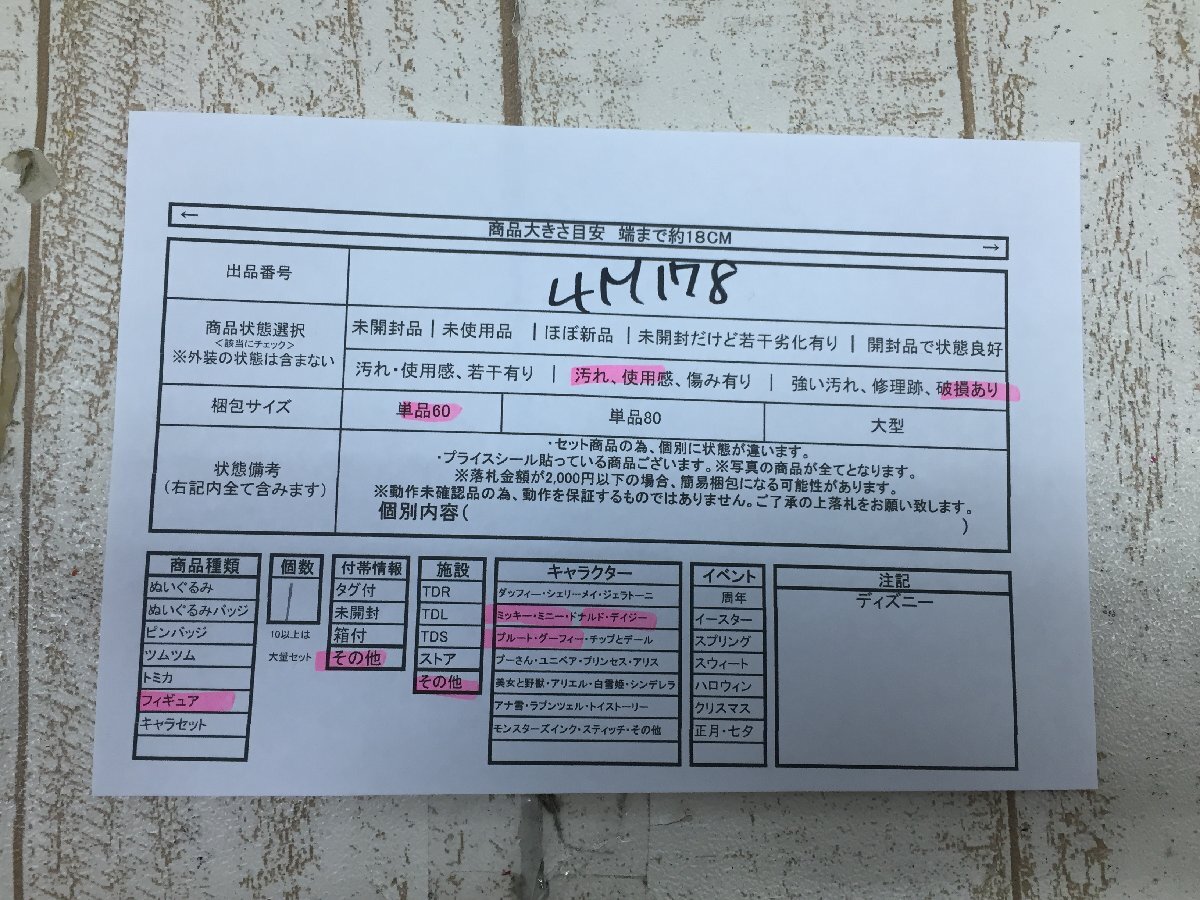 ←
商品大きさ目安 端まで約18CM
→
出品番号
4M178
商品状態選択
<該当にチェック>
※外装の状態は含まない
未開封品 | 未使用品 | ほぼ新品 | 未開封だけど若干劣化有り | 開封品で状態良好
汚れ・使用感、若干有り | 汚れ、使用感、傷み有り | 強い汚れ、修理跡、破損あり
梱包サイズ
単品60
単品80
大型
状態備考
(右記内全て含みます)
・セット商品の為、個別に状態が違います。
・プライスシール貼っている商品ございます。※写真の商品が全てとなります。
※落札金額が2,000円以下の場合、簡易梱包になる可能性があります。
※動作未確認品の為、動作を保証するものではありません。ご了承の上落札をお願い致します。
個別内容( )
商品種類
ぬいぐるみ
ぬいぐるみバッジ
ピンバッジ
ツムツム
トミカ
フィギュア
キャラセット
個数
1
10以上は
大量セット
付帯情報
タグ付
未開封
箱付
その他
施設
TDR
TDL
TDS
ストア
その他
キャラクター
ダッフィー・シェリーメイ・ジェラトーニ
ミッキー・ミニー・ドナルド・デイジー
プルート・グーフィー・チップとデール
プーさん・ユニベア・プリンセス・アリス
美女と野獣・アリエル・白雪姫・シンデレラ
アナ雪・ラプンツェル・トイストーリー
モンスターズインク・スティッチ・その他
イベント
周年
イースター
スプリング
スウィート
ハロウィン
クリスマス
正月・七夕
注記
ディズニー